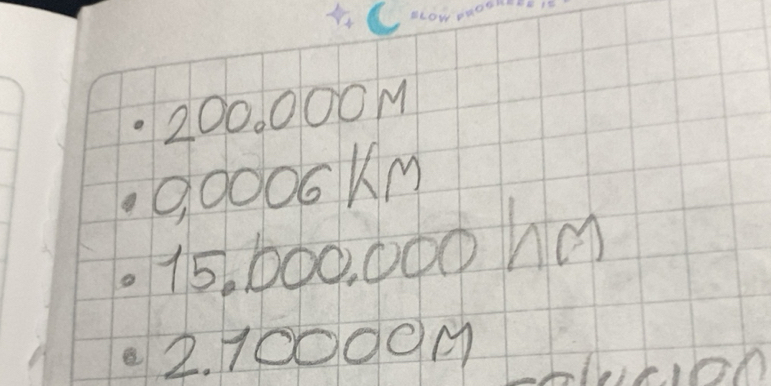 SLOW PROGRESS IS
• 200.000M
• 0,0006 KM
• 15.000.000 hM
• 2.10000M
solucion